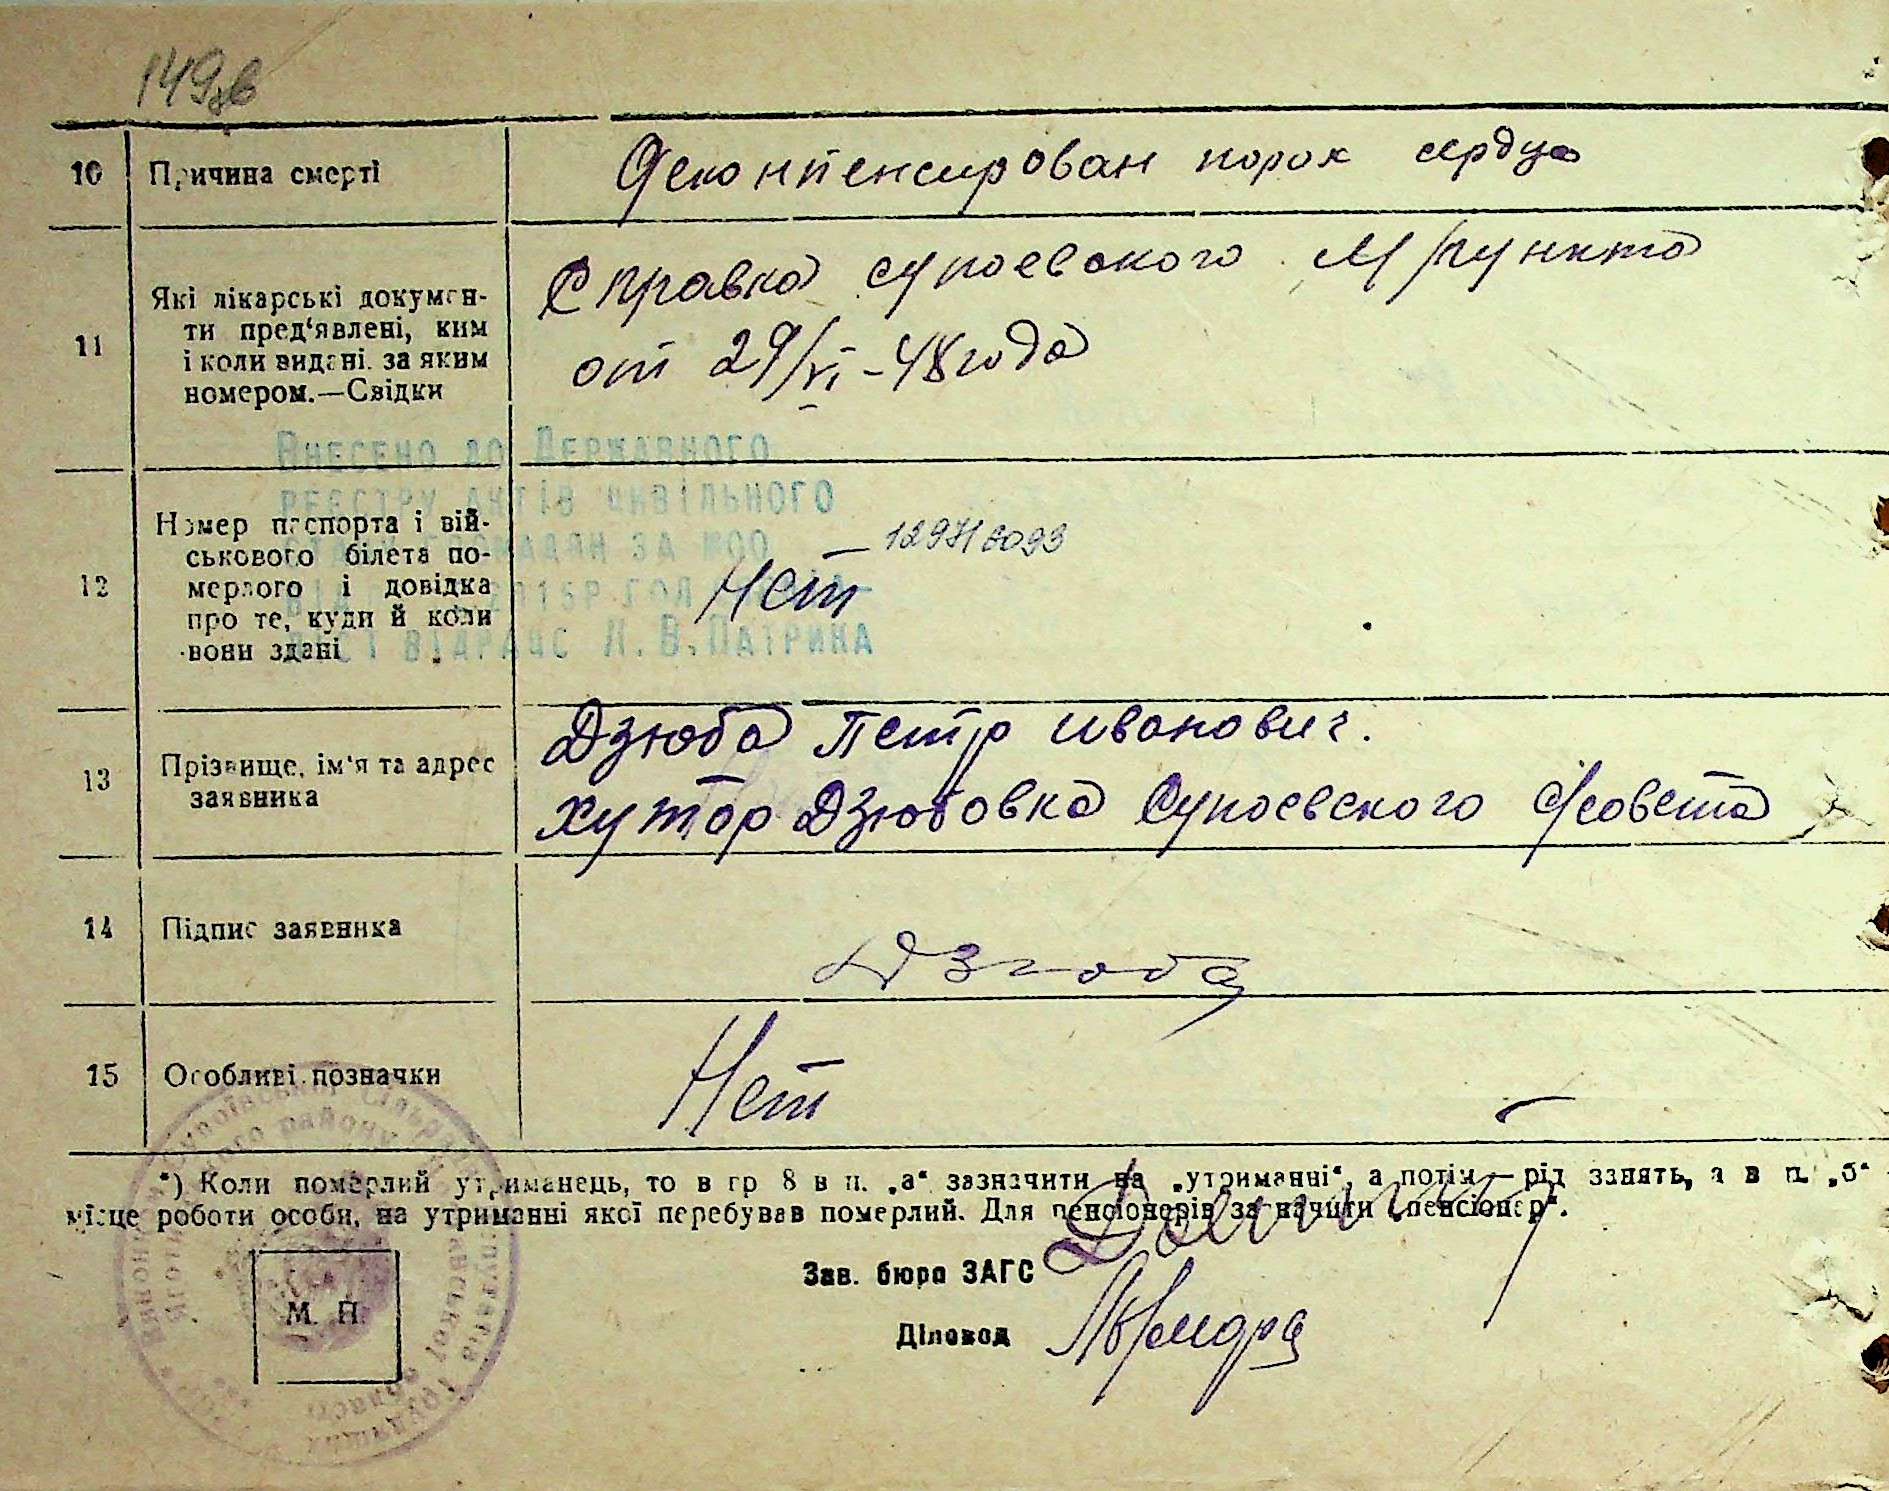 149зв
10 Причина смерті Декомпенсирован порок сердца
11 Які лікарські докумен-
ти пред'явлені, ким
і коли видані за яким
номером.—Свідки
Справка супоевского М/пункта
от 29/VI-48 года
Внесено до Державного
реєстру актів цивільного
громадян за №00
В. Патрина
12 Номер паспорта і вій-
ськового білета по-
мерлого і довідка
про те, куди й коли
вони здані
Нет
13 Прізвище, ім'я та адрес
заявника
Дзюба Петр Иванович.
хутор Дзюбовка Супоевского с/совета
14 Підпис заявника Дзюба
15 Особливі позначки Нет
*) Коли померлий утриманець, то в гр 8 в п. „а“ зазначити на „утриманні“, а потім — рід занять, а в п. „б“
місце роботи особи, на утриманні якої перебував померлий. Для пенсіонерів зазначити „пенсіонер“.
Зав. бюро ЗАГС
Діловод
М. П.